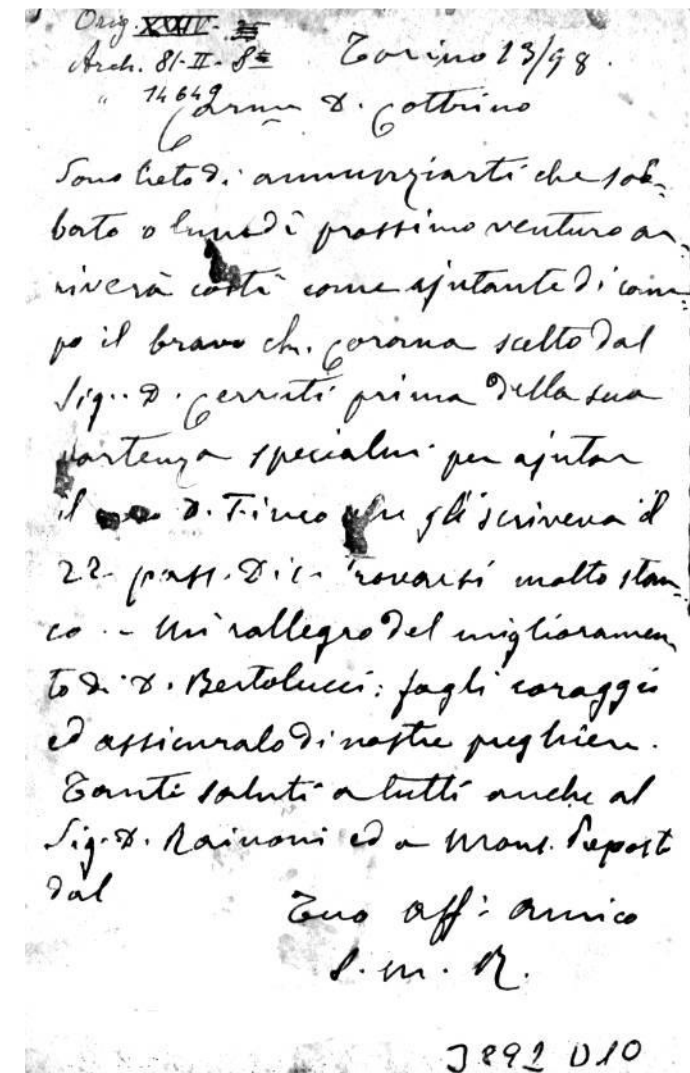 Orig. XXIII-
Arch. 81-II-8
" 14649
Torino 13/98.
Carmo D. Cottrino
Sono lieto di annunziarti che sab-
bato o lunedì prossimo venturo ar-
riverà costì come ajutante di cam-
po il bravo ch. Corona scelto dal
Sig. D. Cerruti prima della sua
partenza specialm. per ajutar
il D. Fineo che gli scriveva il
22 pass. Dic. trovarsi molto stan-
co. - Mi rallegro del miglioramen
to di D. Bertolucci: fagli coraggio
ed assicuralo di nostre preghiere.
Tanti saluti a tutti anche al
Sig. D. Rainoni ed a Mons.
dal
Tuo aff: amico
S. M. R.
3892 D10